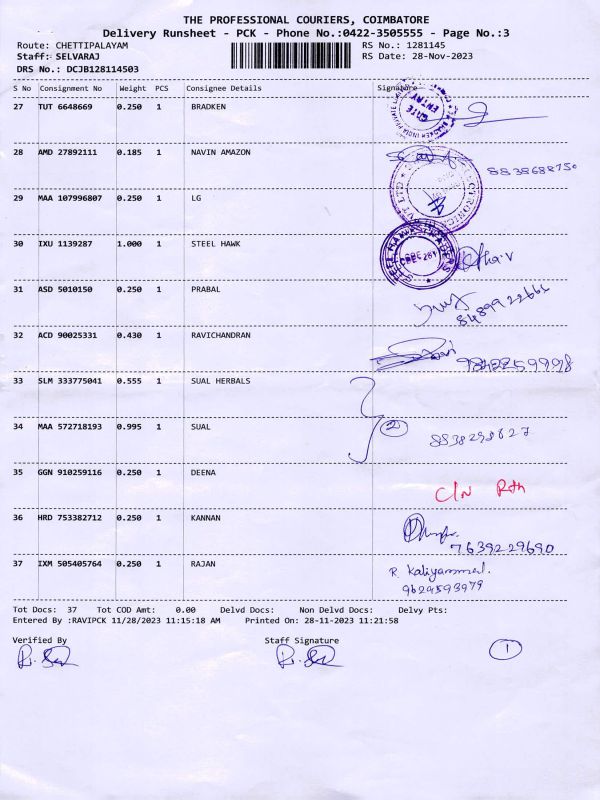 THE PROFESSIONAL COURIERS, COIMBATORE
Delivery Runsheet - PCK - Phone No.:0422-3505555 - Page No.:3
Route: CHETTIPALAYAM RS No.: 1281145
Staff: SELVARAJ RS Date: 28-Nov-2023
DRS No.: DCJB128114503
S No Consignment No Weight PCS Consignee Details Signature
27 TUT 6648669 0.250 1 BRADKEN
GATE ENTRY
28 AMD 27892111 0.185 1 NAVIN AMAZON
8838688750
29 MAA 107996807 0.250 1 LG
30 IXU 1139287 1.000 1 STEEL HAWK
31 ASD 5010150 0.250 1 PRABAL
8489922661
32 ACD 90025331 0.430 1 RAVICHANDRAN
33 SLM 333775041 0.555 1 SUAL HERBALS
34 MAA 572718193 0.995 1 SUAL
2 8838298627
35 GGN 910259116 0.250 1 DEENA
C/N Rth
36 HRD 753382712 0.250 1 KANNAN
7639229690
37 IXM 505405764 0.250 1 RAJAN
R. Kaliyammal.
9629593979
Tot Docs: 37 Tot COD Amt: 0.00 Delvd Docs: Non Delvd Docs: Delvy Pts:
Entered By :RAVIPCK 11/28/2023 11:15:18 AM Printed On: 28-11-2023 11:21:58
Verified By Staff Signature
1